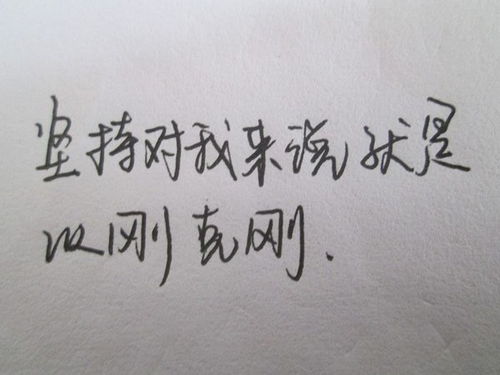 坚持对我来说就是
以刚克刚.